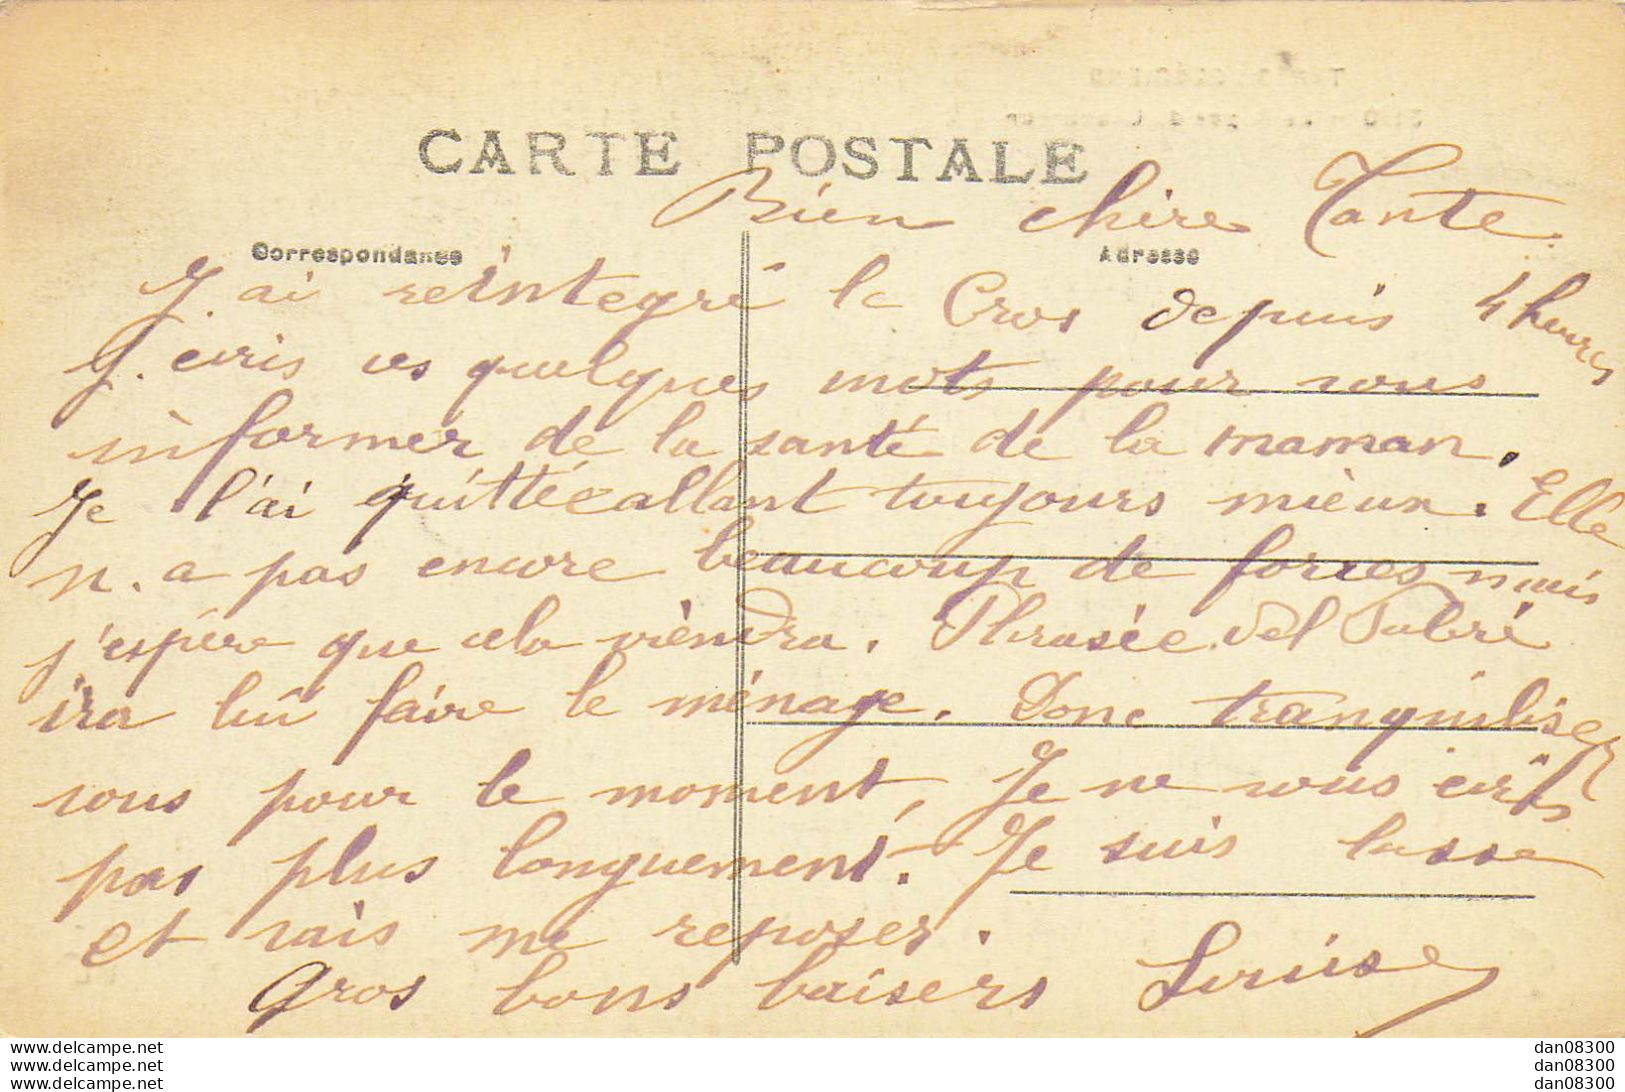 CARTE POSTALE
Bien chère Tante
Correspondance Adresse
J'ai reintegré le Cros depuis 4 heures
J. ecris ces quelques mots pour vous
informer de la santé de la maman.
Je l'ai quittée allant toujours mieux. Elle
n'a pas encore beaucoup de forces mais
j'espére que cela viendra. Phrasée del
ira lui faire le ménage. Donc tranquilisez
vous pour le moment, Je ne vous ecris
pas plus longuement. Je suis lasse
et vais me reposer.
Gros bons baisers Louise
www.delcampe.net dan08300
www.delcampe.net dan08300
www.delcampe.net dan08300